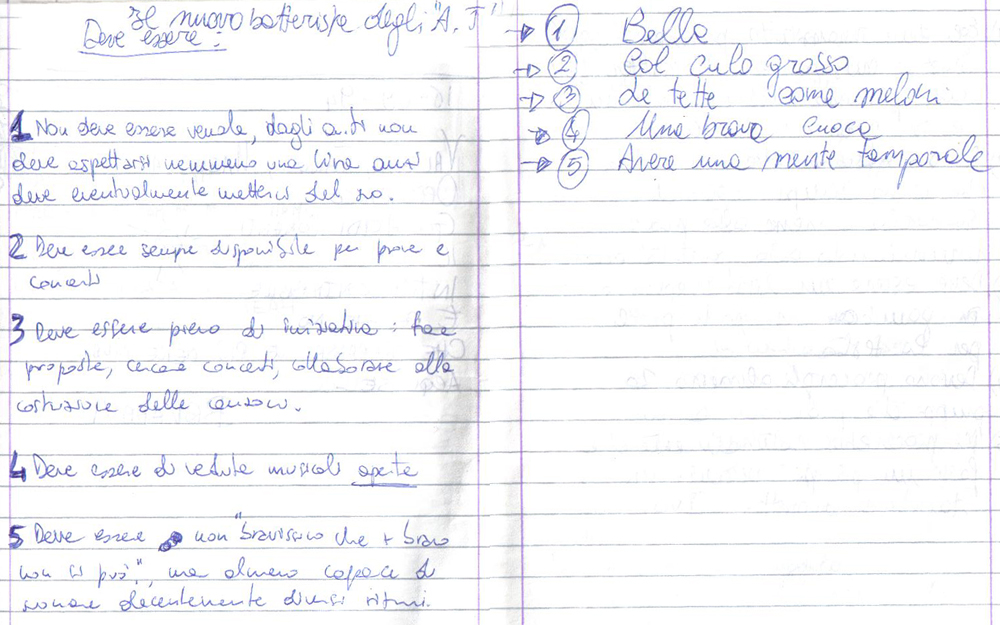 Il nuovo batterista degli "A. T"
Deve essere:
1 Non deve essere venale, dagli a.ti non
deve aspettarsi nemmeno una lira anzi
deve eventualmente metterci del suo.
2 Deve essere sempre disponibile per prove e
concerti
3 Deve essere pieno di iniziativa: fare
proposte, cercare concerti, collaborare alla
costruzione delle canzoni.
4 Deve essere di vedute musicali aperte
5 Deve essere non "bravissimo che + bravo
non si può", ma almeno capace di
suonare decentemente diversi ritmi.
→ 1 Bella
→ 2 Col culo grosso
→ 3 Le tette come meloni
→ 4 Una brava cuoca
→ 5 Avere una mente temporale